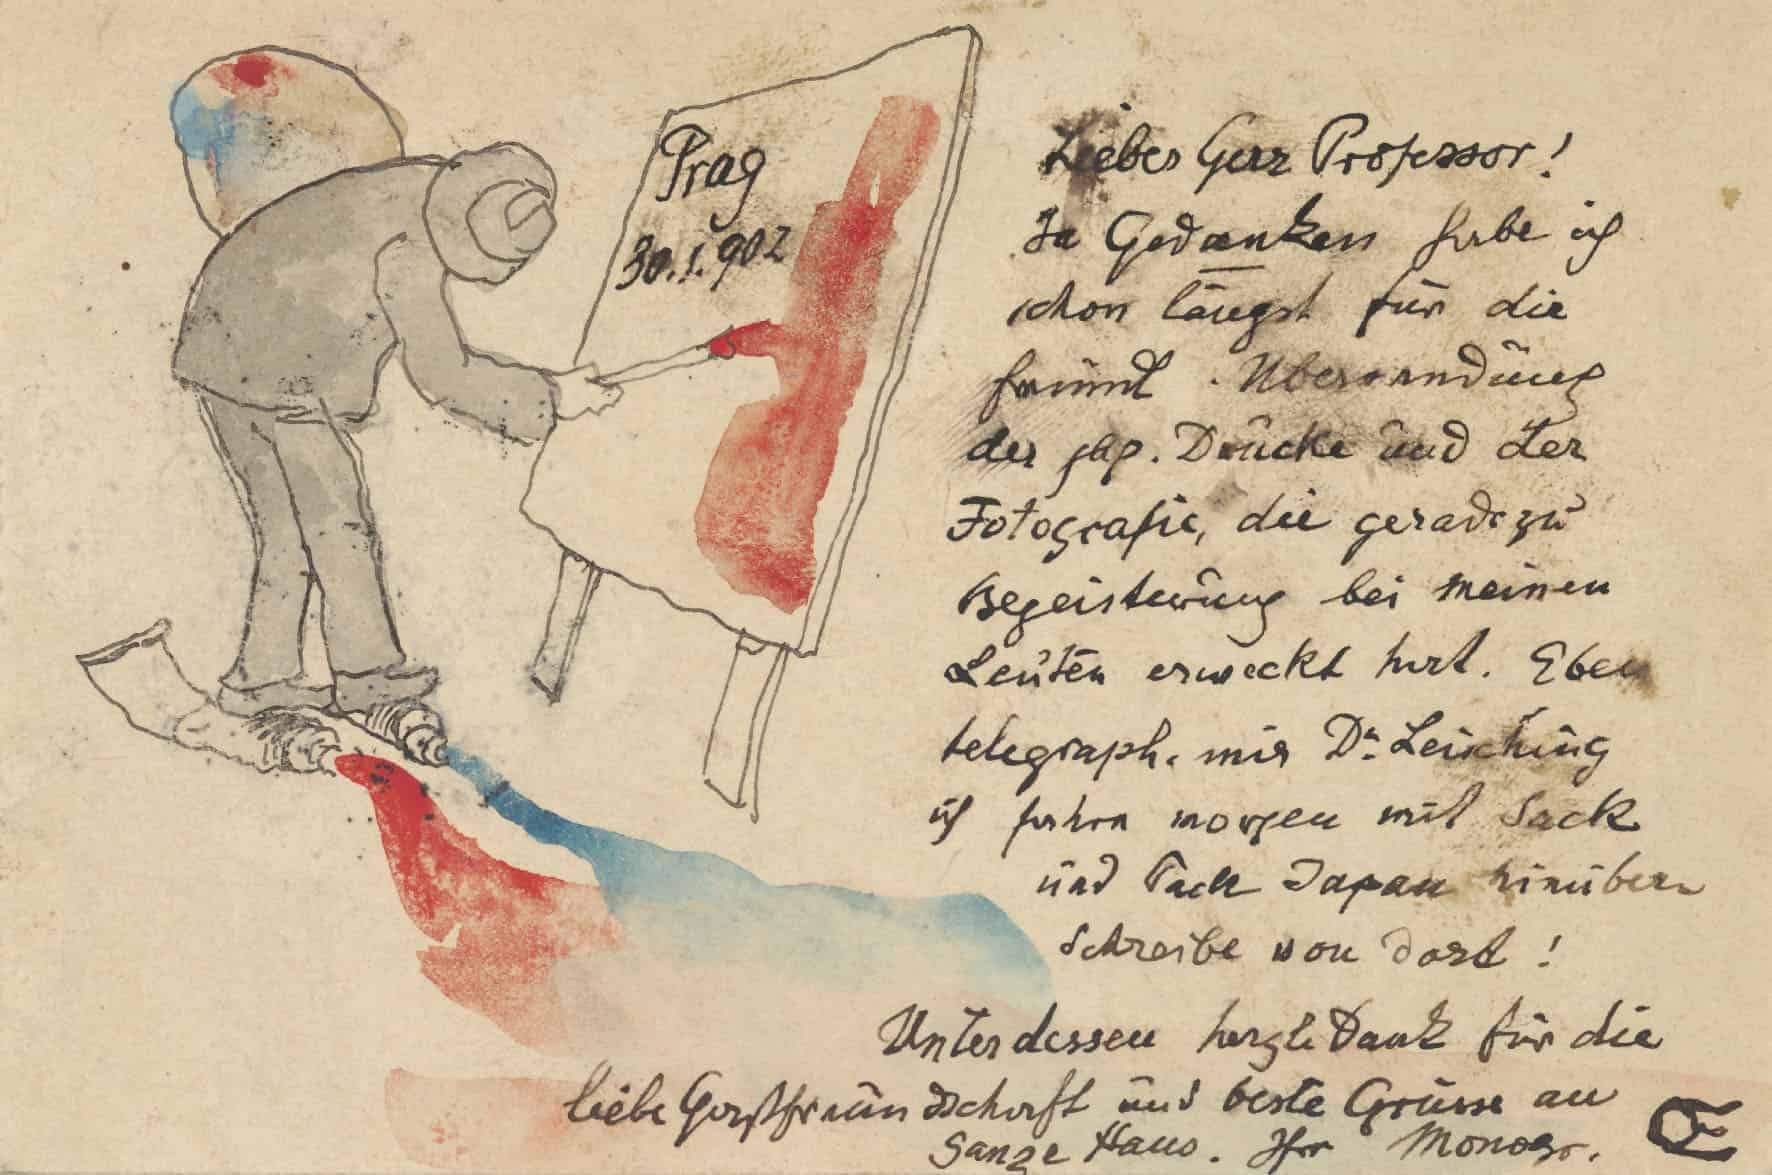 Prag
30.I.902
Lieber Herr Professor!
In Gedanken habe ich
schon längst für die
freundl. Übersendung
der jap. Drucke und der
Fotografie, die geradezu
Begeisterung bei meinen
Leuten erweckt hat. Eben
telegraph. mir Dr. Leisching
ich fahre morgen mit Sack
und Pack Japan hinüber
Schreibe von dort!
Unterdessen herzl. Dank für die
liebe Gastfreundschaft und beste Grüsse an
Ganze Haus. Ihr